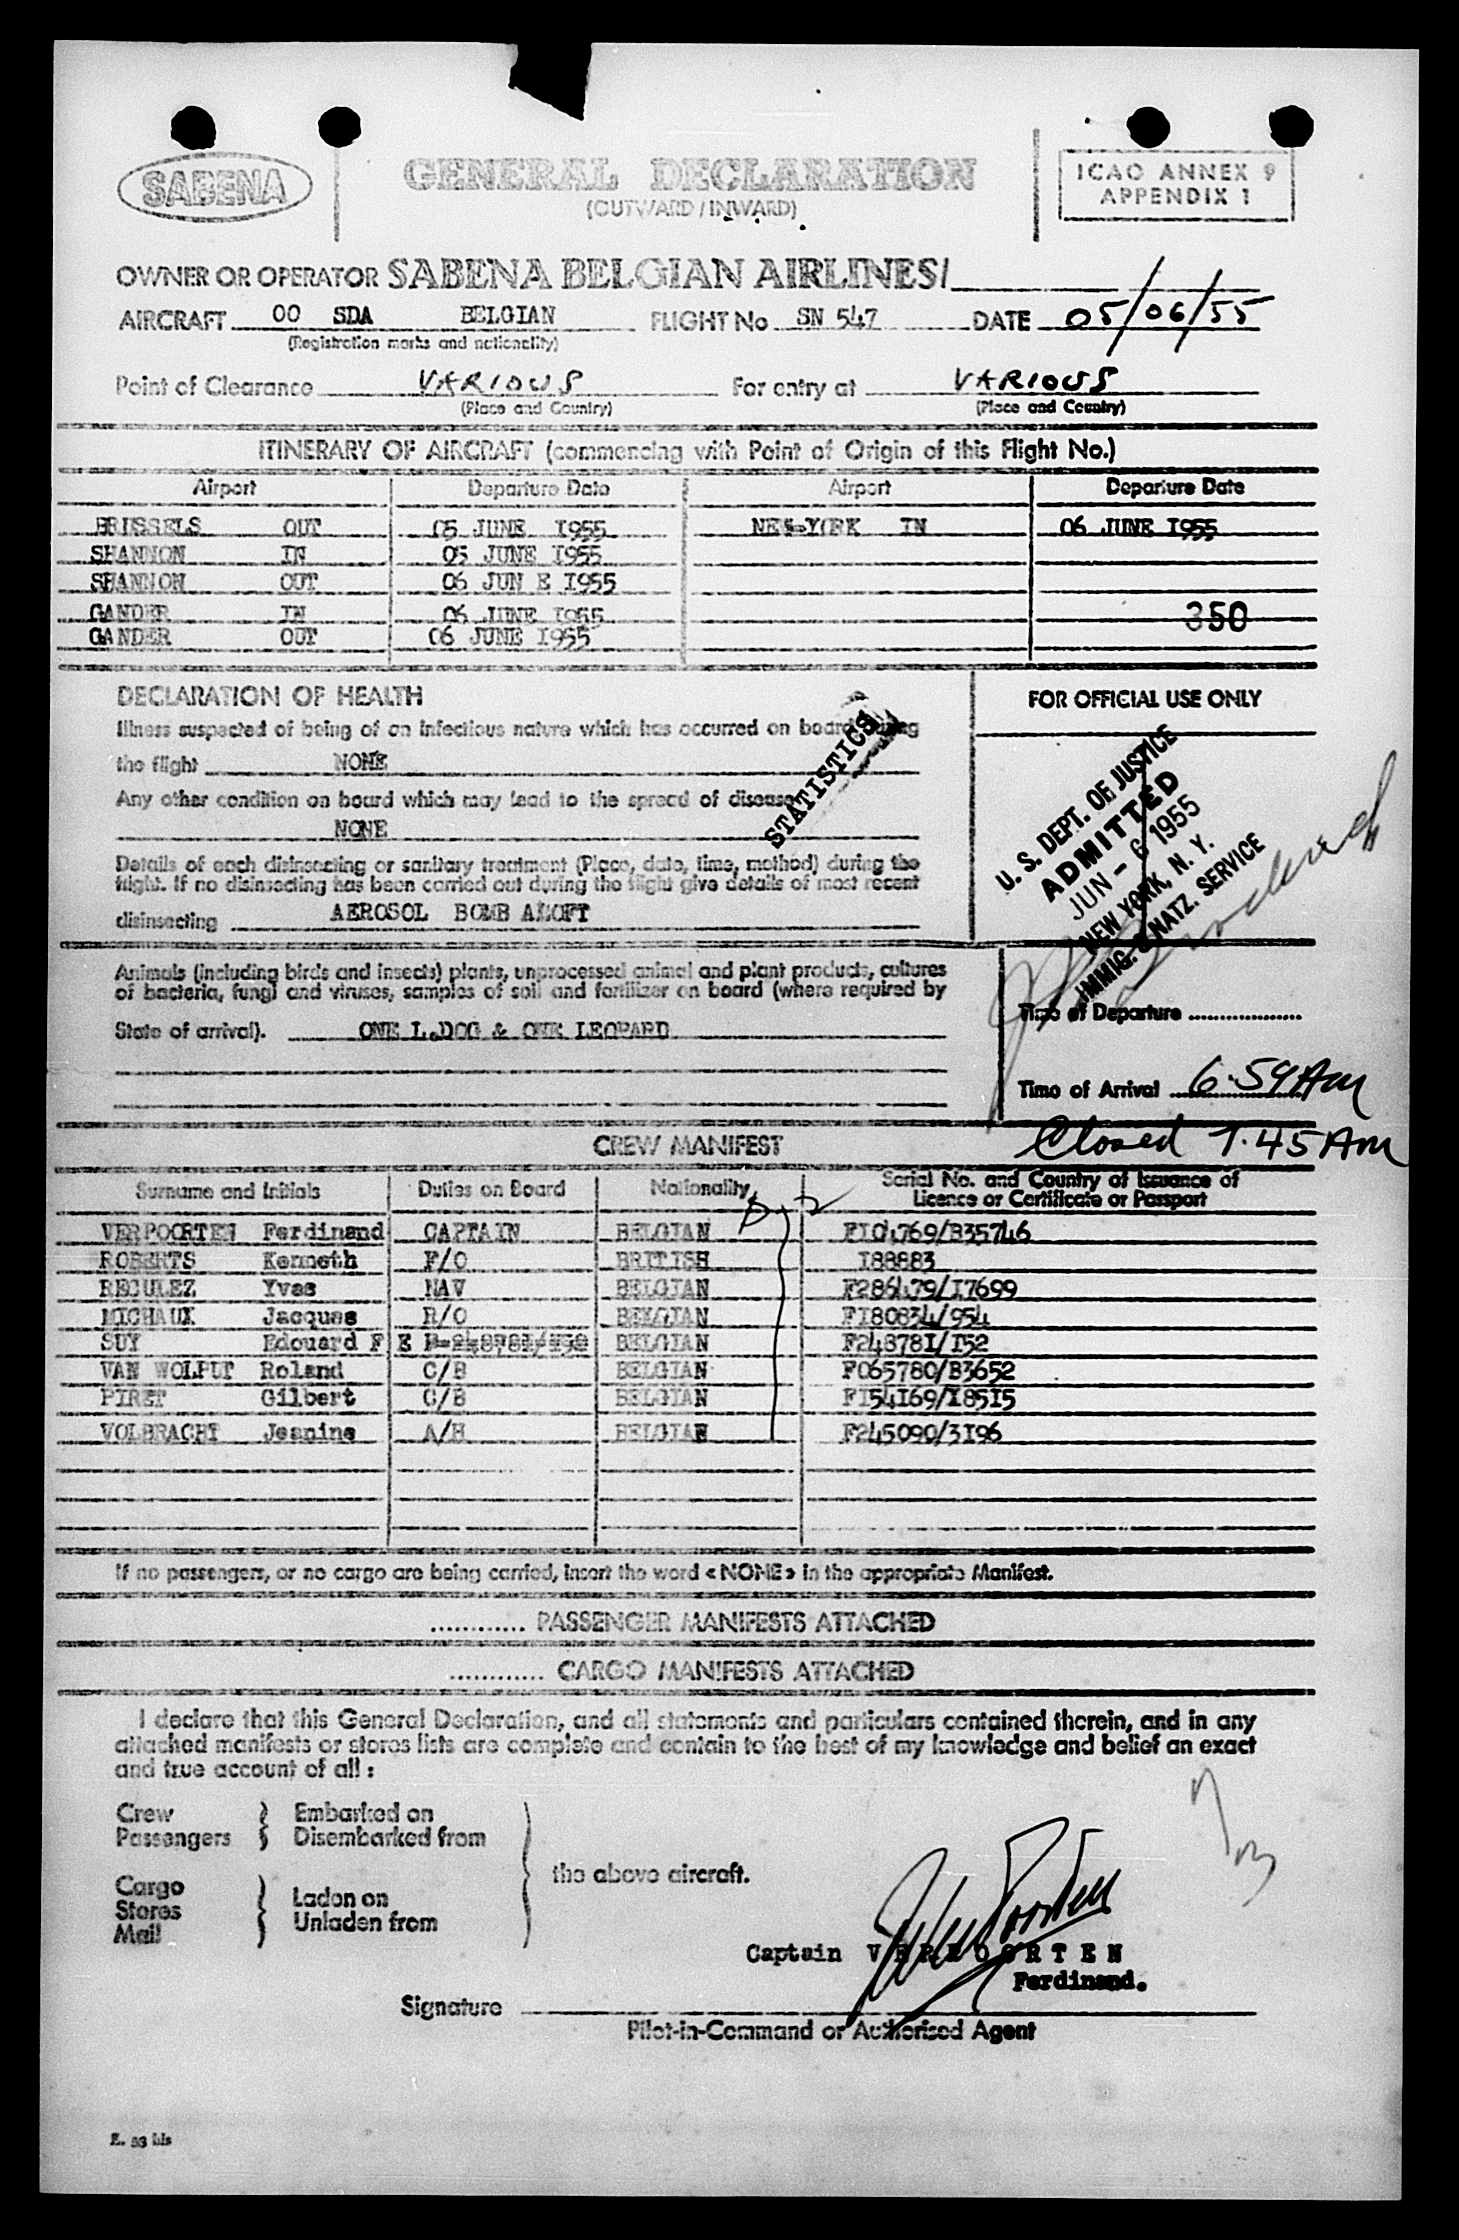 SABENA
GENERAL DECLARATION
(OUTWARD / INWARD)
ICAO ANNEX 9
APPENDIX 1
OWNER OR OPERATOR SABENA BELGIAN AIRLINES/
AIRCRAFT OO SDA BELGIAN FLIGHT No SN 547 DATE 05/06/55
(Registration marks and nationality)
Point of Clearance VARIOUS For entry at VARIOUS
(Place and Country) (Place and Country)
ITINERARY OF AIRCRAFT (commencing with Point of Origin of this Flight No.)
Airport Departure Date Airport Departure Date
BRUSSELS OUT 05 JUNE I955 NEW-YORK IN 06 JUNE I955
SHANNON IN 05 JUNE I955
SHANNON OUT 06 JUN E I955
GANDER IN 06 JUNE I955 350
GANDER OUT 06 JUNE I955
DECLARATION OF HEALTH
Illness suspected of being of an infectious nature which has occurred on board during
the flight NONE
Any other condition on board which may lead to the spread of disease
NONE
Details of each disinsecting or sanitary treatment (Place, date, time, method) during the
flight. If no disinsecting has been carried out during the flight give details of most recent
disinsecting AEROSOL BOMB ALOFT
STATISTICS
FOR OFFICIAL USE ONLY
U. S. DEPT. OF JUSTICE
ADMITTED
JUN - 6 1955
NEW YORK, N. Y.
IMMIG. & NATZ. SERVICE
Animals (including birds and insects) plants, unprocessed animal and plant products, cultures
of bacteria, fungi and viruses, samples of soil and fertilizer on board (where required by
State of arrival). ONE L.DOG & ONE LEOPARD
Time of Departure
Time of Arrival 6.59 Am
Closed 7.45 Am
CREW MANIFEST
Surname and Initials Duties on Board Nationality Serial No. and Country of Issuance of
Licence or Certificate or Passport
VERPOORTEN Ferdinand CAPTAIN BELGIAN FI04769/B35746
ROBERTS Kenneth F/O BRITISH I88883
REGULEZ Yves NAV BELGIAN F286479/I7699
MICHAUX Jacques R/O BELGIAN FI80834/954
SUY Edouard F E BELGIAN F24878I/I52
VAN WOLPUT Roland C/B BELGIAN F065780/B3652
PIRET Gilbert C/B BELGIAN FI54I69/I85I5
VOLBRACHT Jeanine A/H BELGIAN F245090/3I96
If no passengers, or no cargo are being carried, insert the word « NONE » in the appropriate Manifest.
............ PASSENGER MANIFESTS ATTACHED
............ CARGO MANIFESTS ATTACHED
I declare that this General Declaration, and all statements and particulars contained therein, and in any
attached manifests or stores lists are complete and contain to the best of my knowledge and belief an exact
and true account of all :
Crew Embarked on
Passengers Disembarked from
the above aircraft.
Cargo
Stores Laden on
Mail Unladen from
Captain V E R P O O R T E N
Ferdinand.
Signature
Pilot-in-Command or Authorised Agent
E. 53 bis